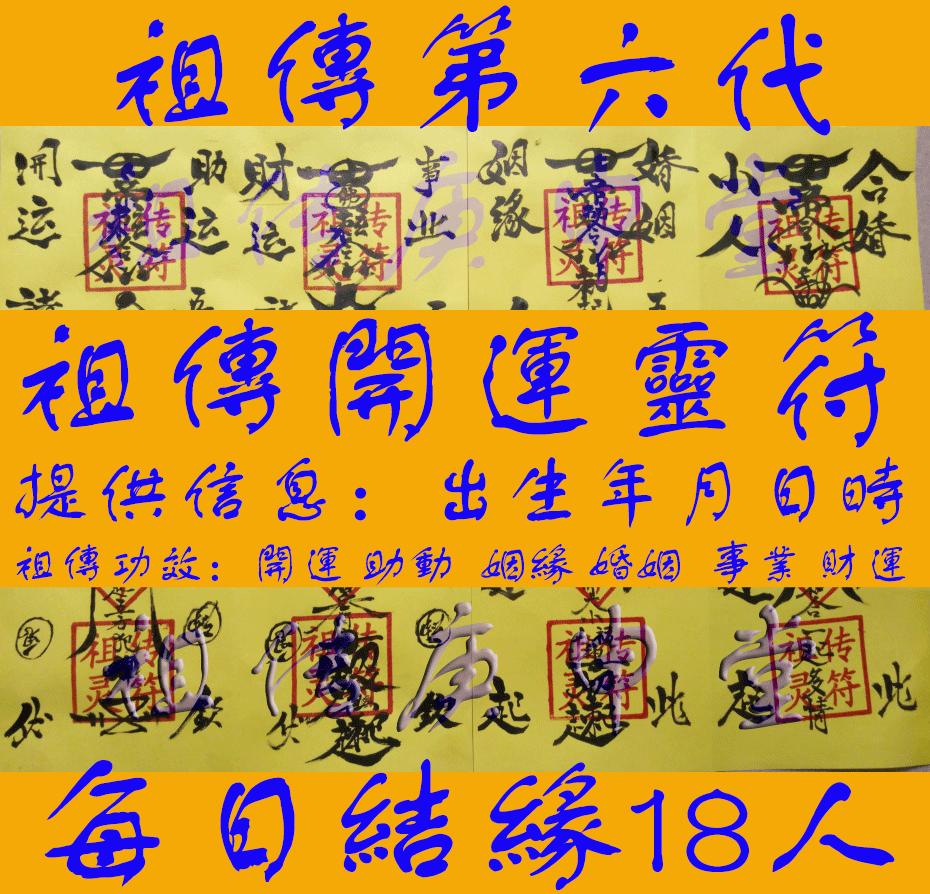 祖傳第六代
開运 助运 財运 事业 姻緣 婚姻 小人 合婚
祖传灵符 祖传灵符 祖传灵符 祖传灵符
祖傳開運靈符
提供信息：出生年月日時
祖傳功效：開運 助動 姻緣 婚姻 事業 財運
祖传灵符 祖传灵符 祖传灵符 祖传灵符
伏 欽 伏 欽 起 此 起 此
每日結緣18人